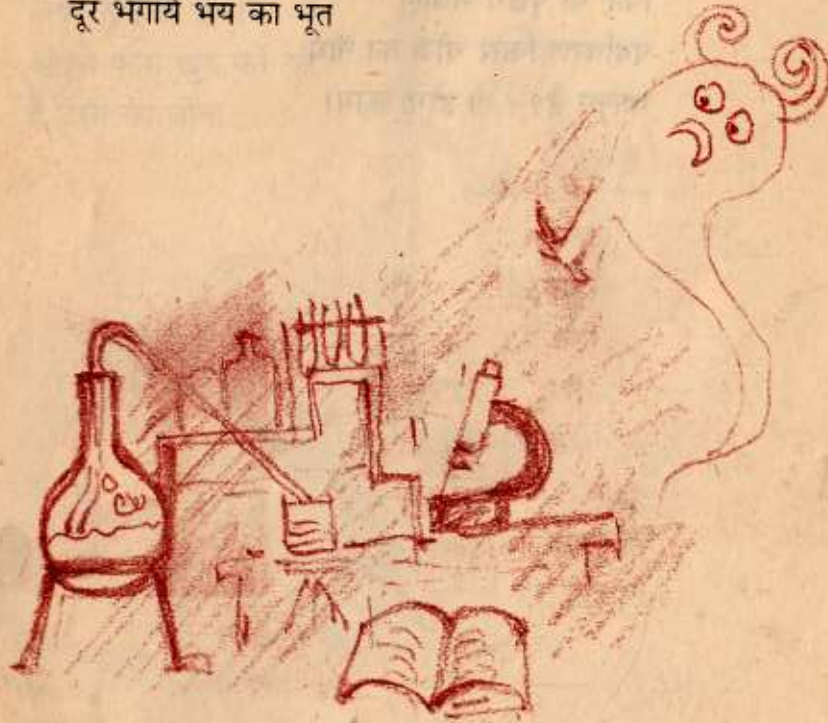 दूर भगाये भय का भूत